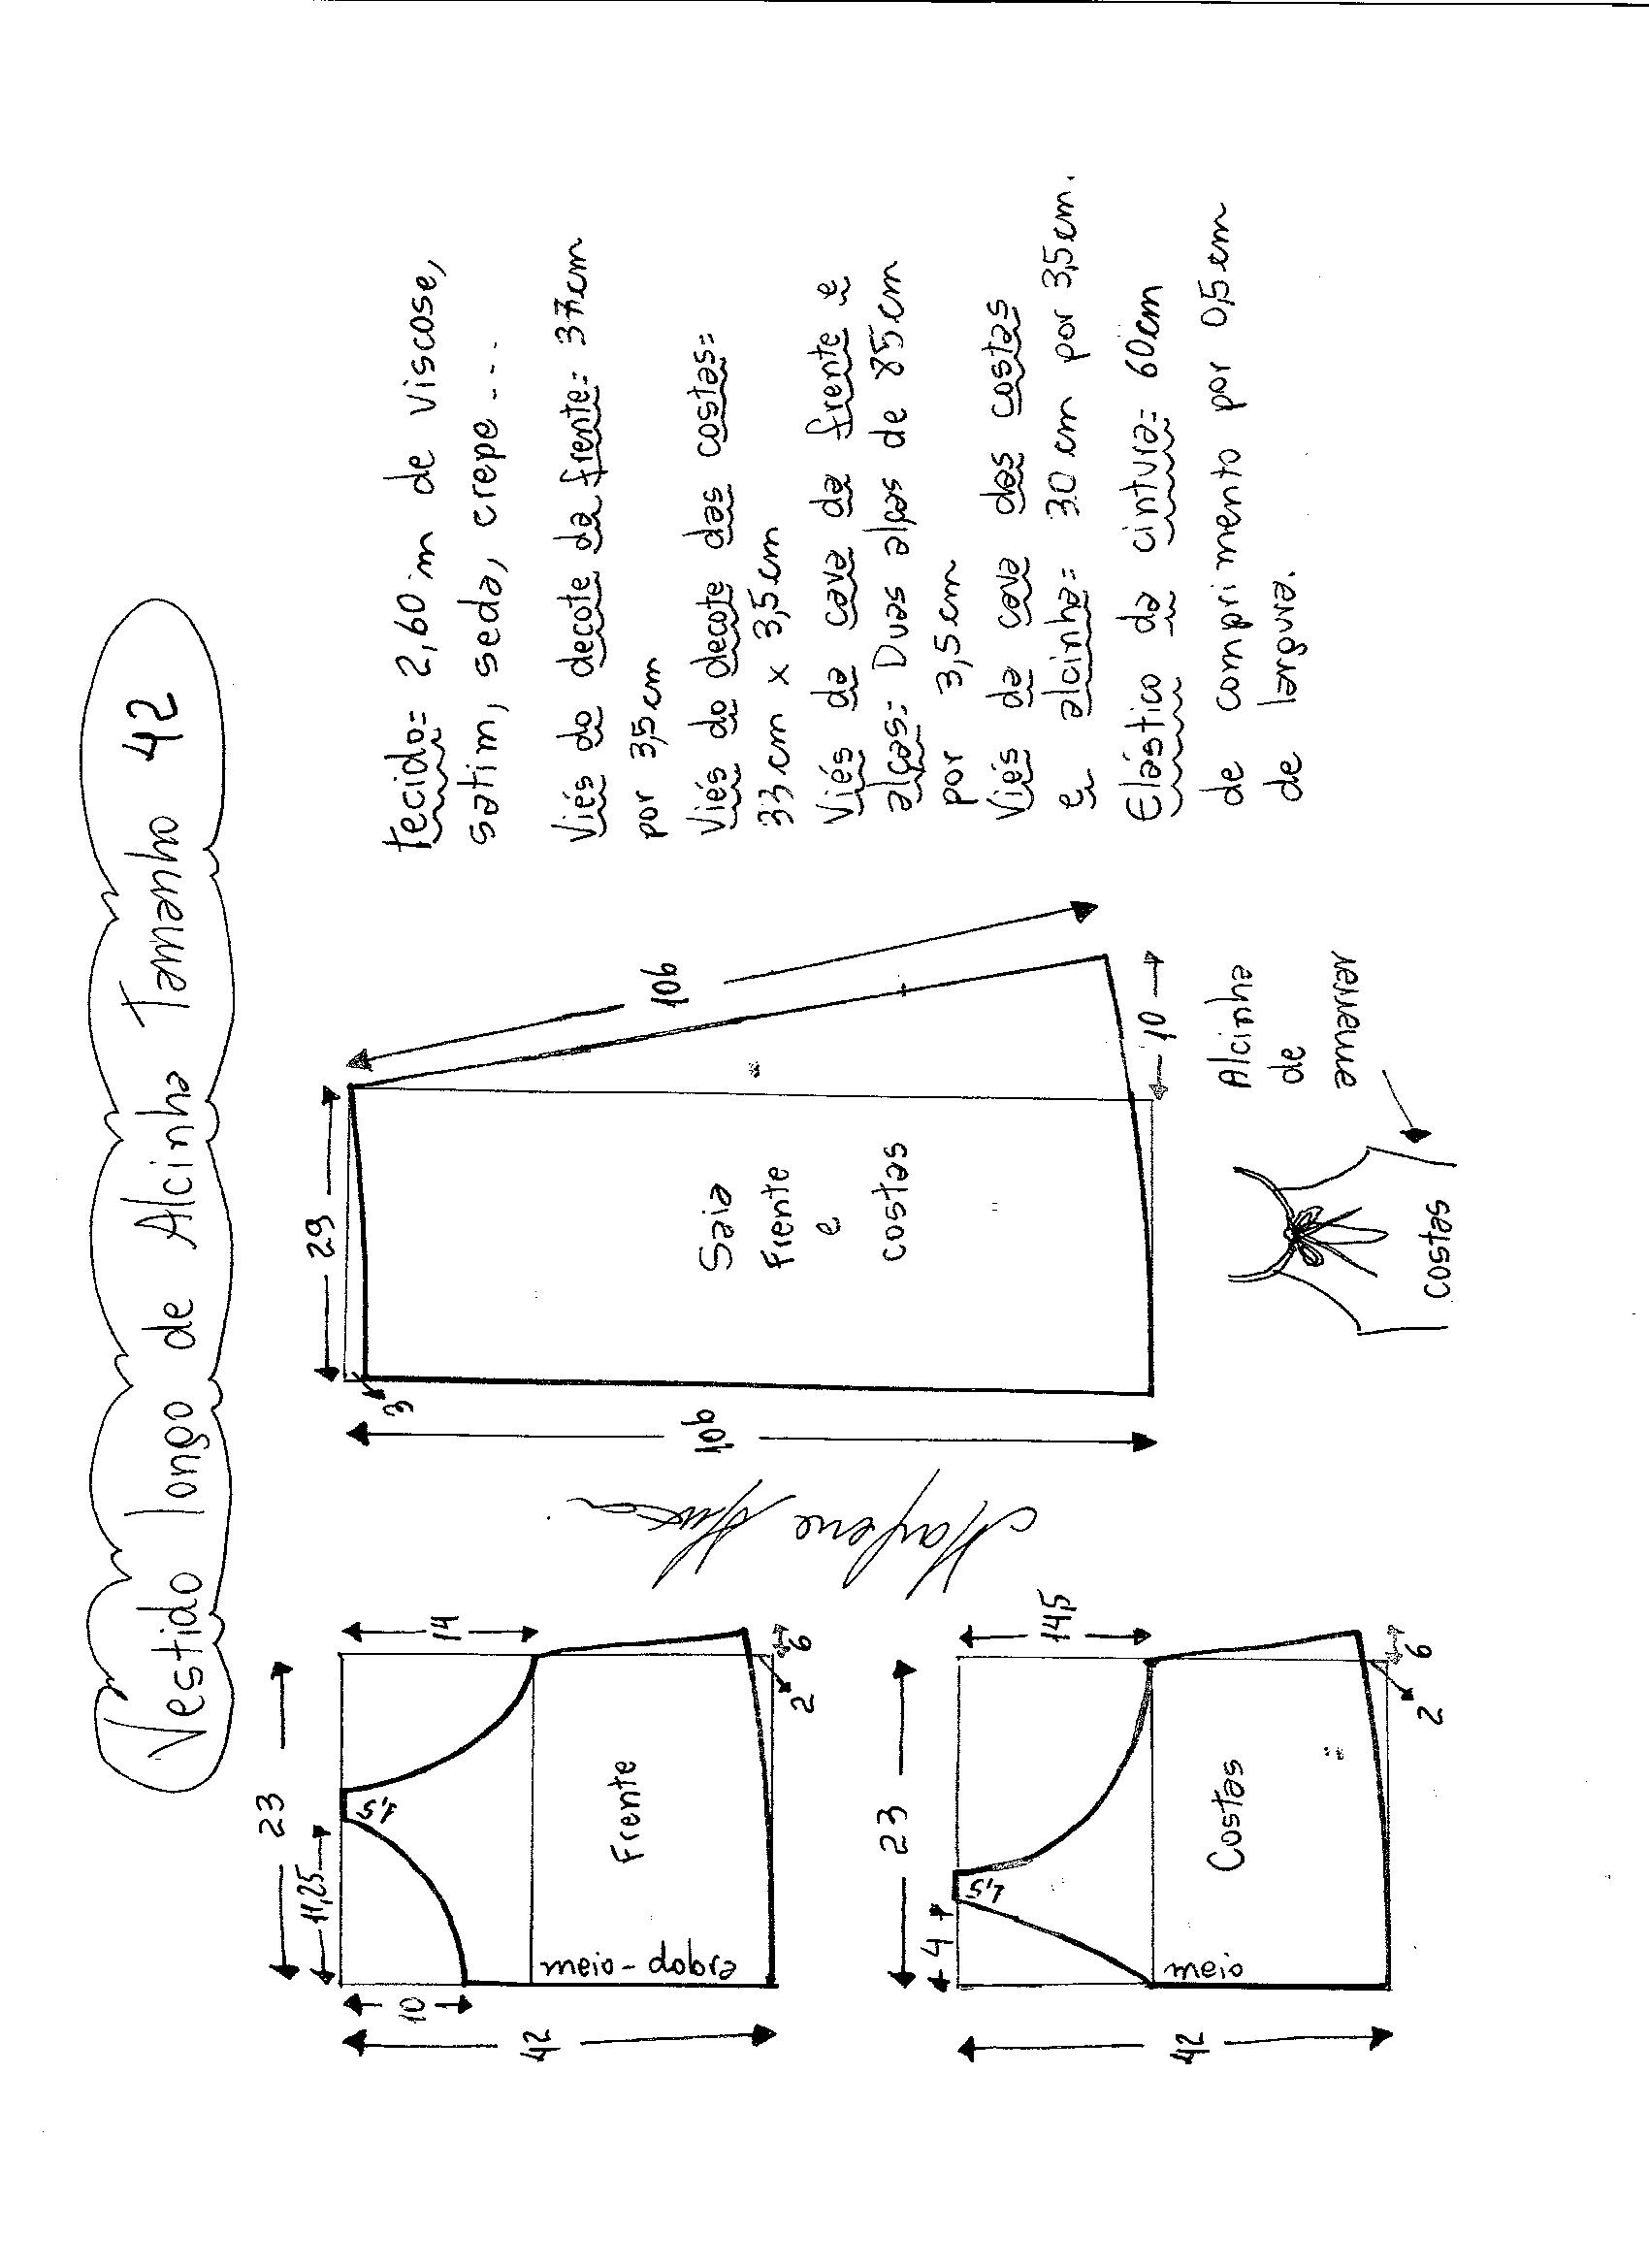 Vestido longo de Alcinha Tamanho 42
23
11,25
1,5
14
10
42
Frente
meio-dobra
2
6
23
4
1,5
14,5
42
Costas
meio
2
6
29
3
106
106
Saia
Frente
e
costas
10
Alcinha
de
amarrar
costas
tecido= 2,60 m de viscose,
satim, seda, crepe....
Viés do decote da frente= 37cm
por 3,5 cm
Viés do decote das costas=
33 cm x 3,5 cm
Viés da cava da frente e
alças= Duas alças de 85 cm
por 3,5 cm
Viés da cava das costas
e alcinha= 30 cm por 3,5 cm.
Elástico da cintura= 60cm
de comprimento por 0,5 cm
de largura.